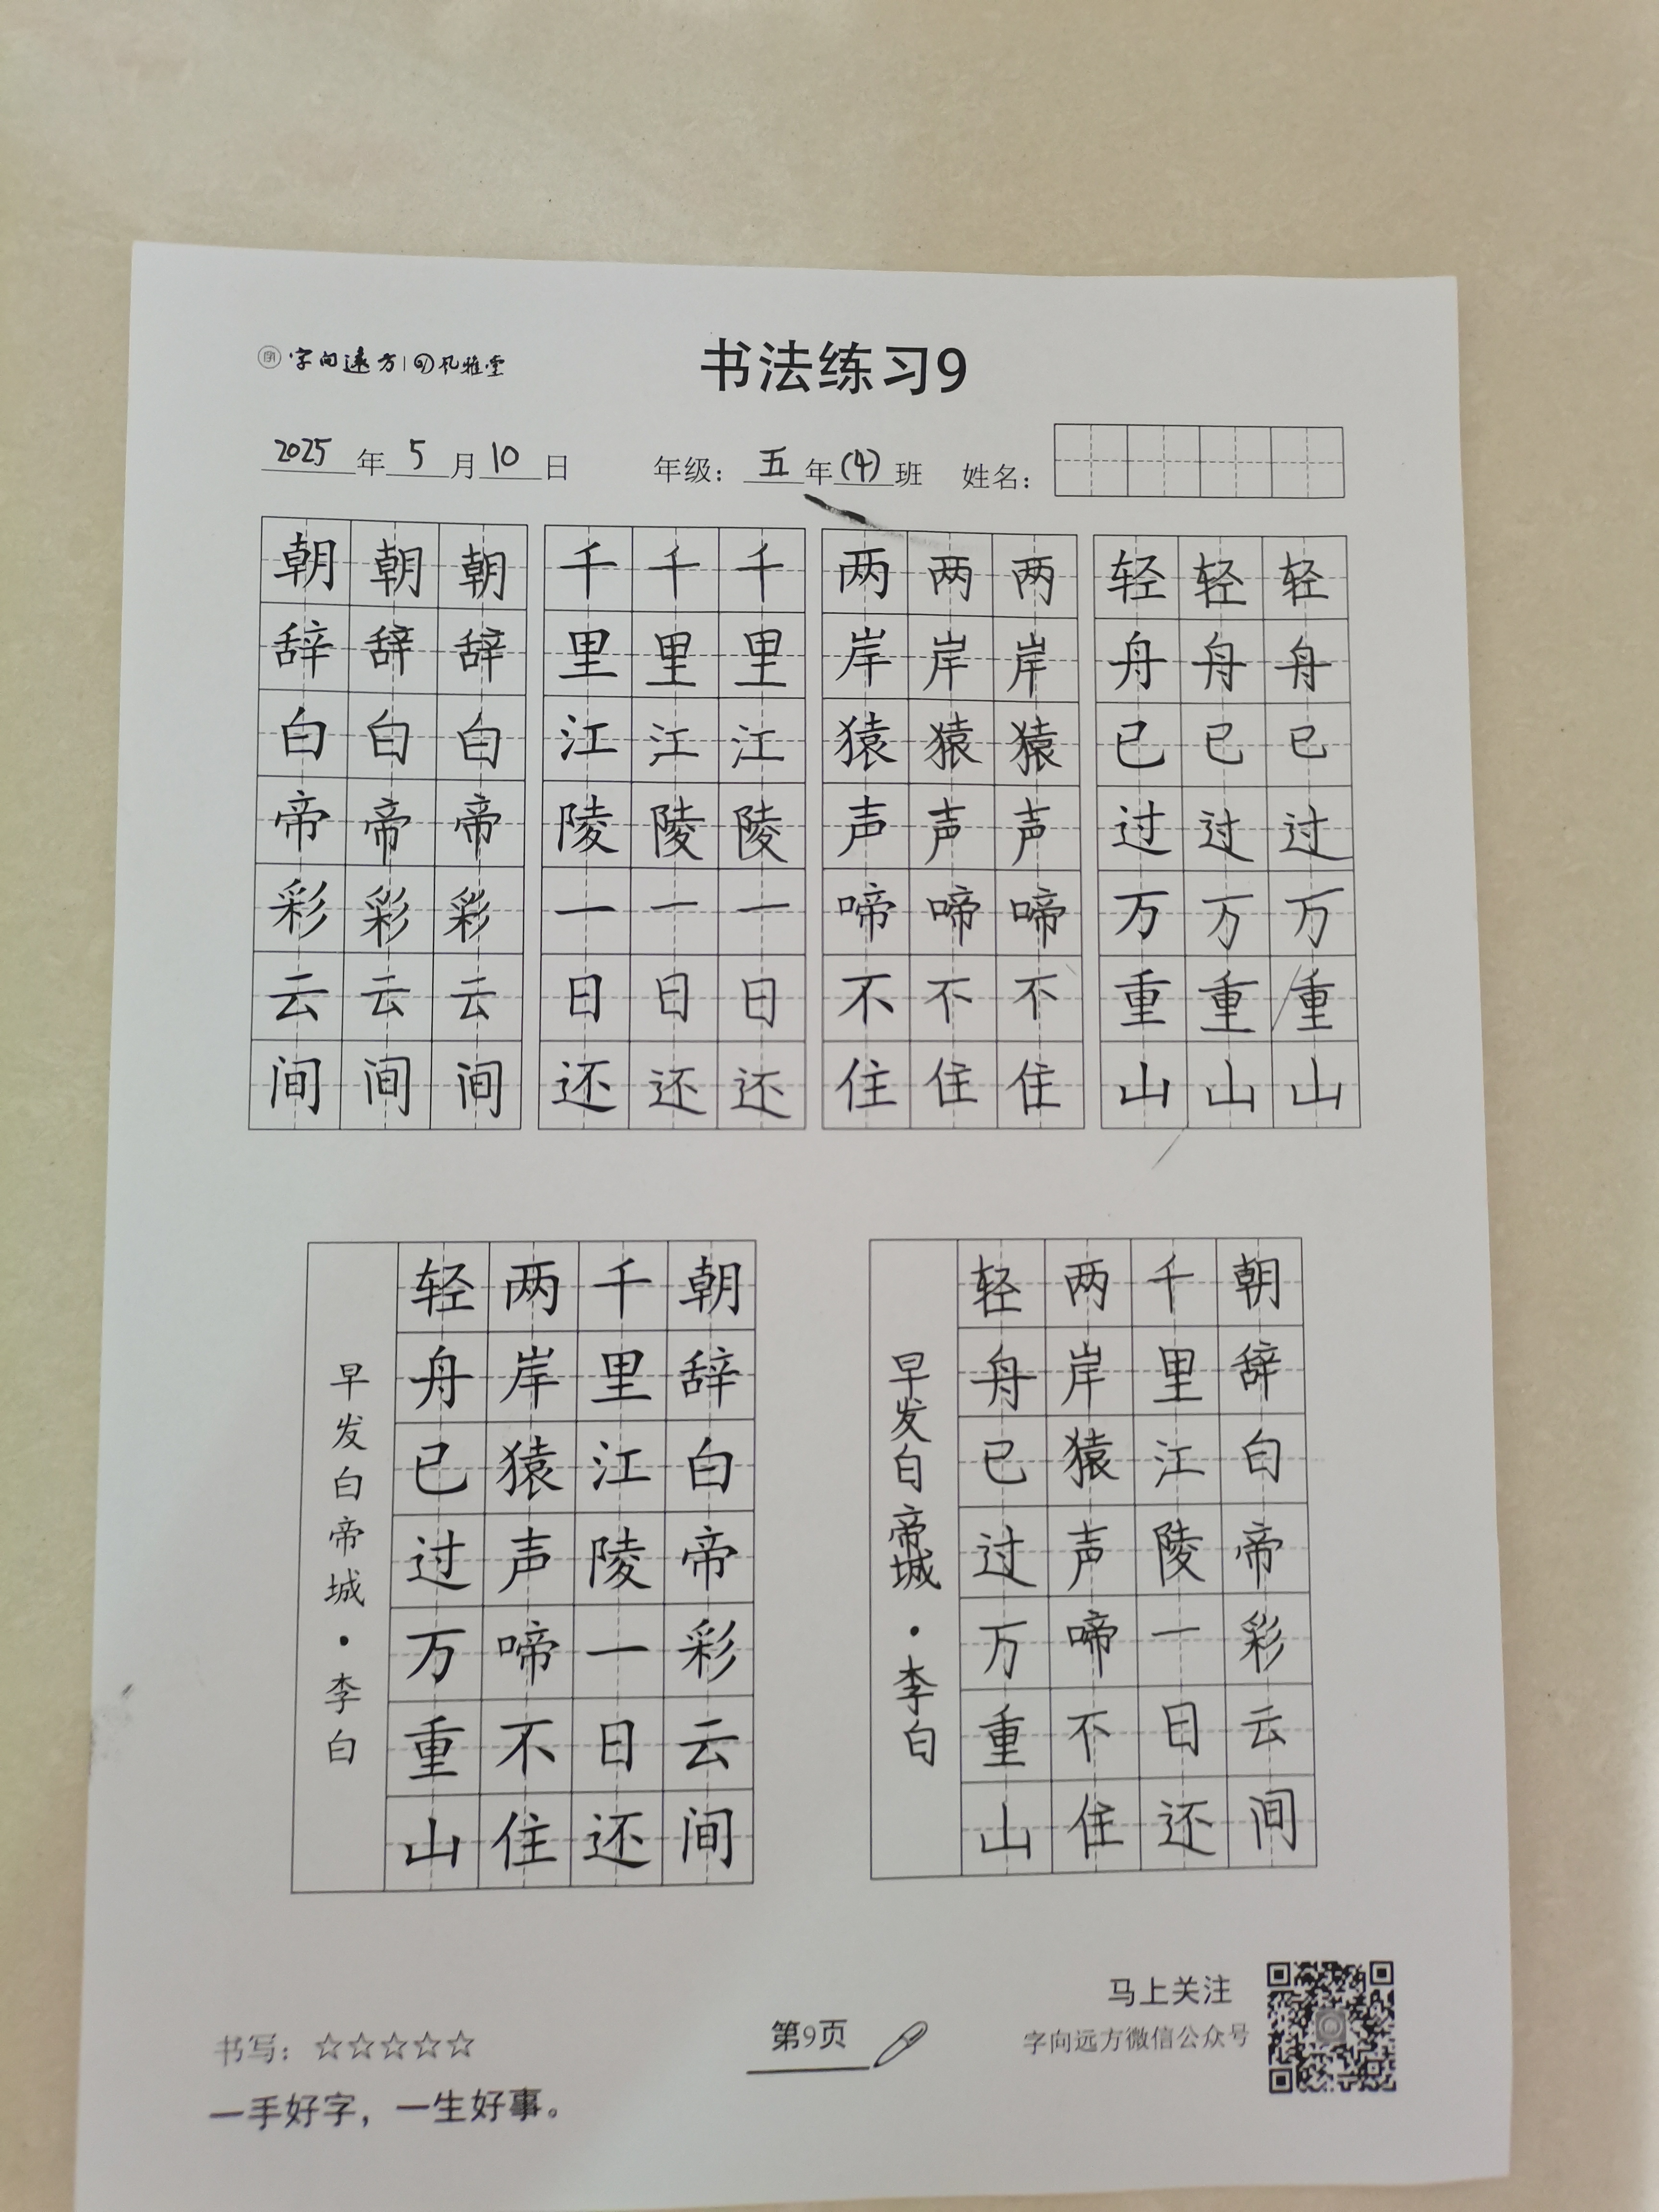 字向远方 | 孔雅堂
书法练习9
2025年5月10日 年级：五年(4)班 姓名：
朝朝朝 千千千 两两两 轻轻轻
辞辞辞 里里里 岸岸岸 舟舟舟
白白白 江江江 猿猿猿 已已已
帝帝帝 陵陵陵 声声声 过过过
彩彩彩 一一一 啼啼啼 万万万
云云云 日日日 不不不 重重重
间间间 还还还 住住住 山山山
朝辞白帝彩云间
千里江陵一日还
两岸猿声啼不住
轻舟已过万重山
早发白帝城·李白
朝辞白帝彩云间
千里江陵一日还
两岸猿声啼不住
轻舟已过万重山
早发白帝城·李白
书写：☆☆☆☆☆
一手好字，一生好事。
第9页
马上关注
字向远方微信公众号